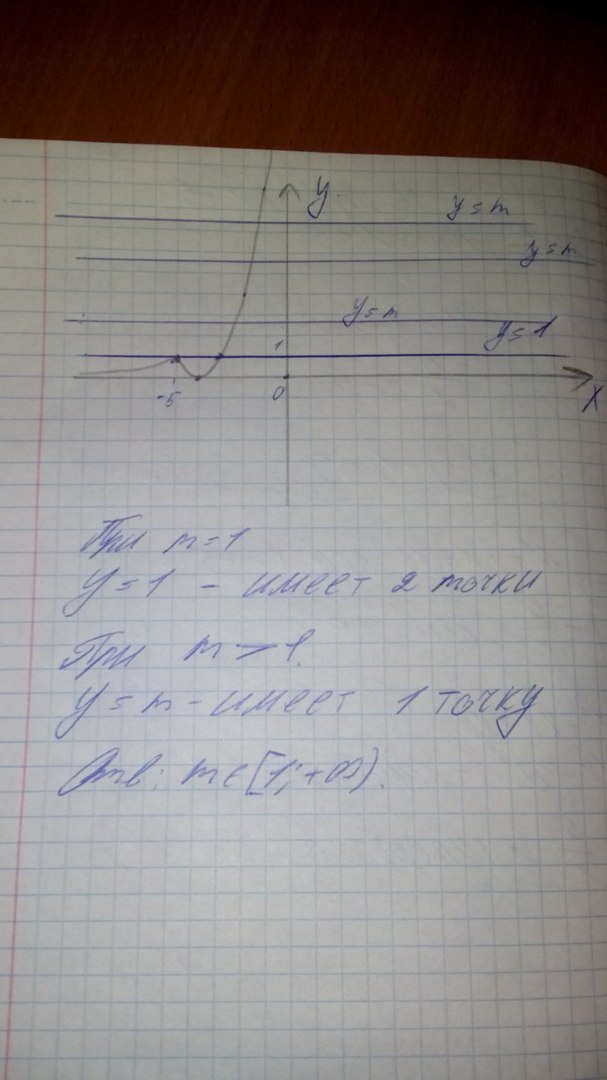 y
y = m
y = m
y = m
y = 1
1
-5
0
X
При m = 1
y = 1 - имеет 2 точки
При m > 1.
y = m - имеет 1 точку
Отв: m ∈ [1; +∞).